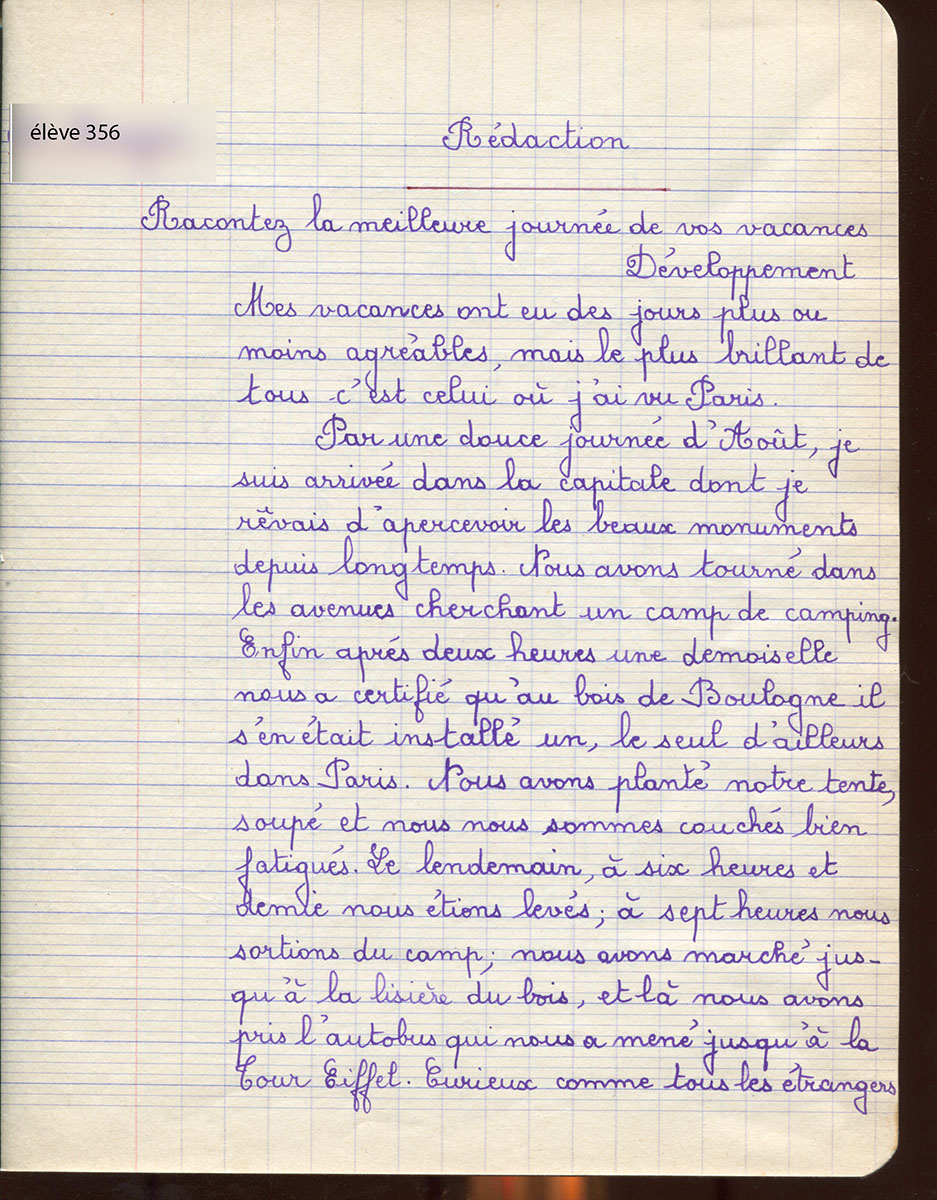 élève 356
Rédaction
Racontez la meilleure journée de vos vacances
Développement
Mes vacances ont eu des jours plus ou
moins agréables, mais le plus brillant de
tous c'est celui où j'ai vu Paris.
Par une douce journée d'Août, je
suis arrivée dans la capitale dont je
rêvais d'apercevoir les beaux monuments
depuis longtemps. Nous avons tourné dans
les avenues cherchant un camp de camping.
Enfin aprés deux heures une demoiselle
nous a certifié qu'au bois de Boulogne il
s'en était installé un, le seul d'ailleurs
dans Paris. Nous avons planté notre tente,
soupé et nous nous sommes couchés bien
fatigués. Le lendemain, à six heures et
demie nous étions levés; à sept heures nous
sortions du camp; nous avons marché jus-
qu'à la lisière du bois, et là nous avons
pris l'autobus qui nous a mené jusqu'à la
Tour Eiffel. Curieux comme tous les étrangers